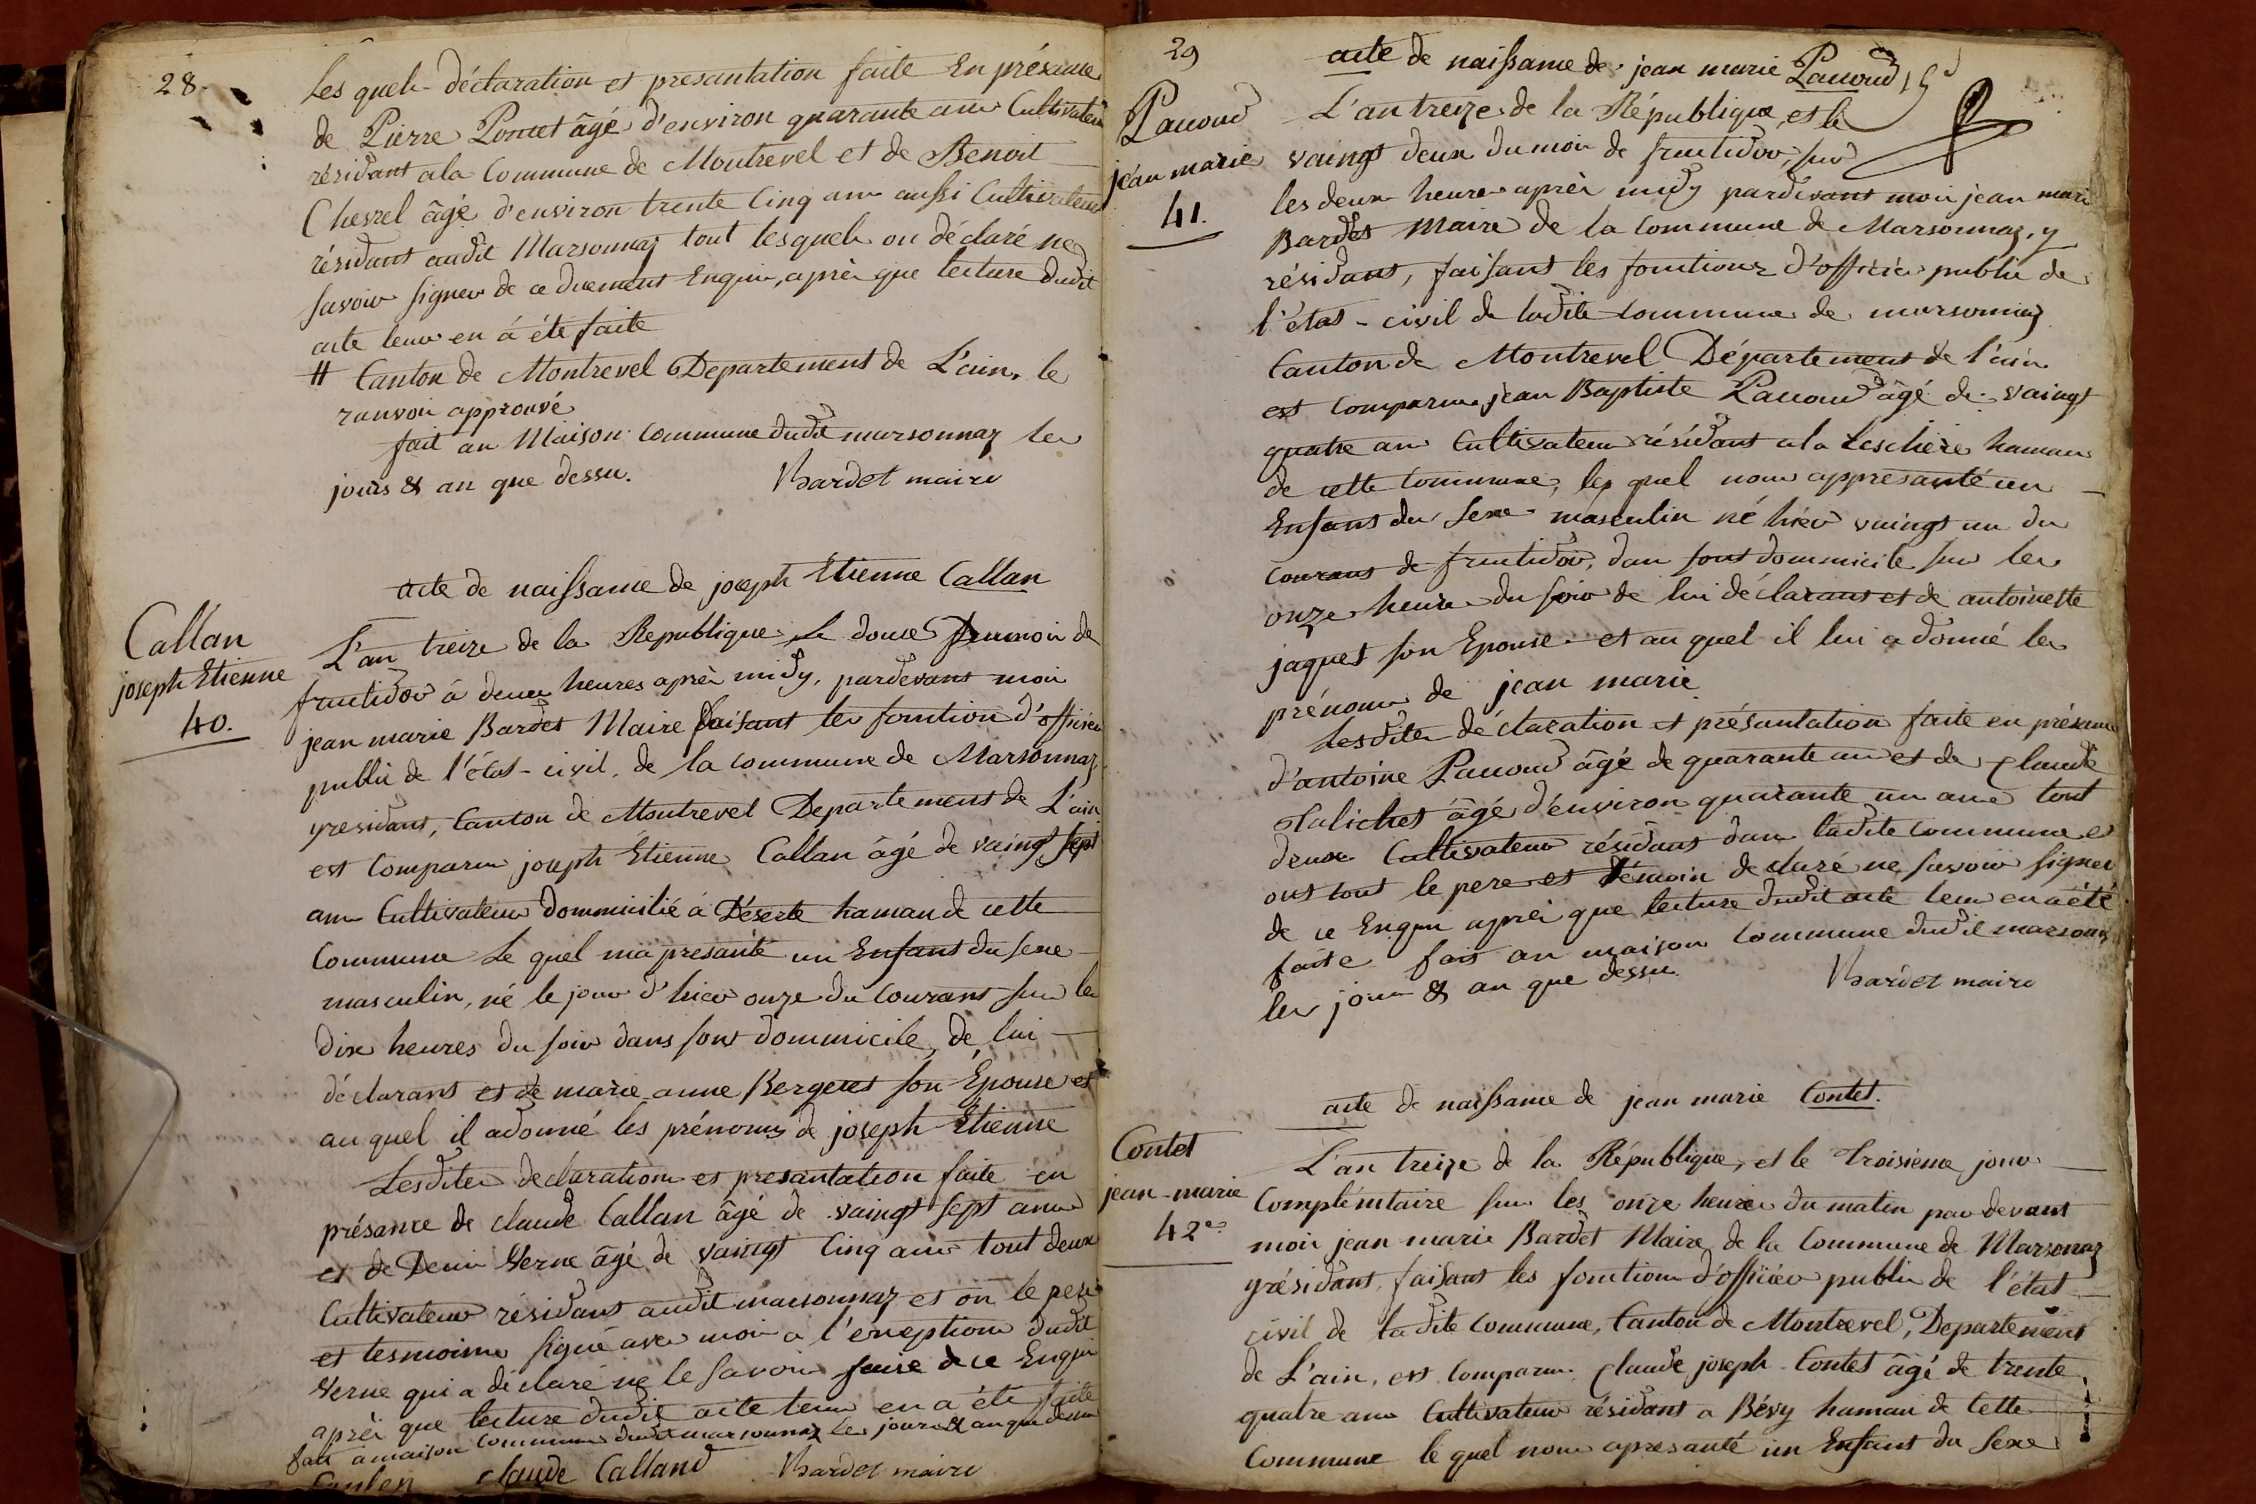 28.
Les quels déclaration et presantation faite En présance
de Pierre Poncet âgé d'environ quarante ans Cultivateur
résidant a la Commune de Montrevel et de Benoit
Chevrel âgé d'environ trente Cinq ans aussi Cultivateur
résidant audit Marsonnaz tout lesquels on déclaré ne
savoir signer de ce duement Enquis, après que lecture dudit
acte leur en á éte faite
# Canton de Montrevel Departement de L'ain, le
ranvoi approuvé
fait an Maison Commune dudit marsonnaz les
jours & an que dessu. Bardet maire
acte de naissance de joseph Etienne Callan
Callan
joseph Etienne
40.
L'an treize de la Republique Le douse Du mois de
fructidor á deux heures après midy, pardevant moi
jean marie Bardet Maire faisant les fonction d'officier
public de l'état-civil, de la commune de Marsonnaz
y residant, Canton de Montrevel Departement de L'ain
est Comparu joseph Étienne Callan âgé de vaingt sept
ans Cultivateur dommicilié á Déserte hamau de cette
Commune Le quel má presanté un Enfant du sexe
masculin, né le jour d'hier onze du Courant sur les
dix heures du soir dans sont dommicile, de lui
déclarant et de marie anne Bergeret son Épouse et
au quel il a donné les prénoms de joseph Etienne
Lesdites declaration et presantation faite en
présance de claude Callan âgé de vaingt sept ans
et de Denis Verne âgé de vaingt Cinq ans tout deux
Cultivateur résidant audit marsonnaz et on le pere
et tesmoins signé avec moi a l'éxception dudit
Verne qui a déclaré ne le savoir faire de ce Enquis
après que lecture dudit acte leur en a éte faite
fait a maison Commune dudit marsonnaz les jours & an que dessu
claude Calland Bardet maire
29
acte de naissance de jean marie Pauoud
Pauoud
jean marie
41.
L'an treize de la République, et le
vaingt deux du mois de fructidor, sur
les deux heures après midy pardevant moi jean mari
Bardet Maire de la Commune de Marsonnaz, y
résidant, faisant les fonctions d'officier public de
l'état-civil de ladite Commune de marsonnaz
Canton de Montrevel Département de l'ain
est Comparu jean Baptiste Pauoud âgé de vaingt
quatre ans Cultivateur résidant a la Leschère hamau
de cette Commune, les quel nous appresanté un
Enfant du sexe masculin né hier vaingt un du
Courant de fructidor, dan sont dommicile sur les
onze heure du soir de lui déclarant et de antoinette
jaquet son Epouse et au quel il lui a donné les
prénoms de jean marie
Lesdites déclaration et présantation faite en présance
d'antoine Pauoud âgé de quarante ans et de claude
âgé d'environ quarante un ans tout
deux Cultivateur résidant dans ladite Commune et
ont tout le pere et témoin declaré ne savoir signer
de ce Enquis après que lecture dudit acte leur en a été
faite fait an maison Commune dudit marsonnaz
les jour & an que dessu Bardet maire
acte de naissance de jean marie Contet.
Contet
jean-marie
42e
L'an treize de la République, et le troisieme jour
Complémtaire sur les onze heures du matin par devant
moi jean marie Bardet Maire de la Commune de Marsonnaz
y résidant, faisant les fonctions d'officier public de l'état
civil de ladite Commune, Canton de Montrevel, Departement
de L'ain, est Comparu Claude joseph Contet âgé de trente
quatre ans Cultivateur résidant a Bévy hamau de Cette
Commune le quel nous apresanté un Enfant du sexe